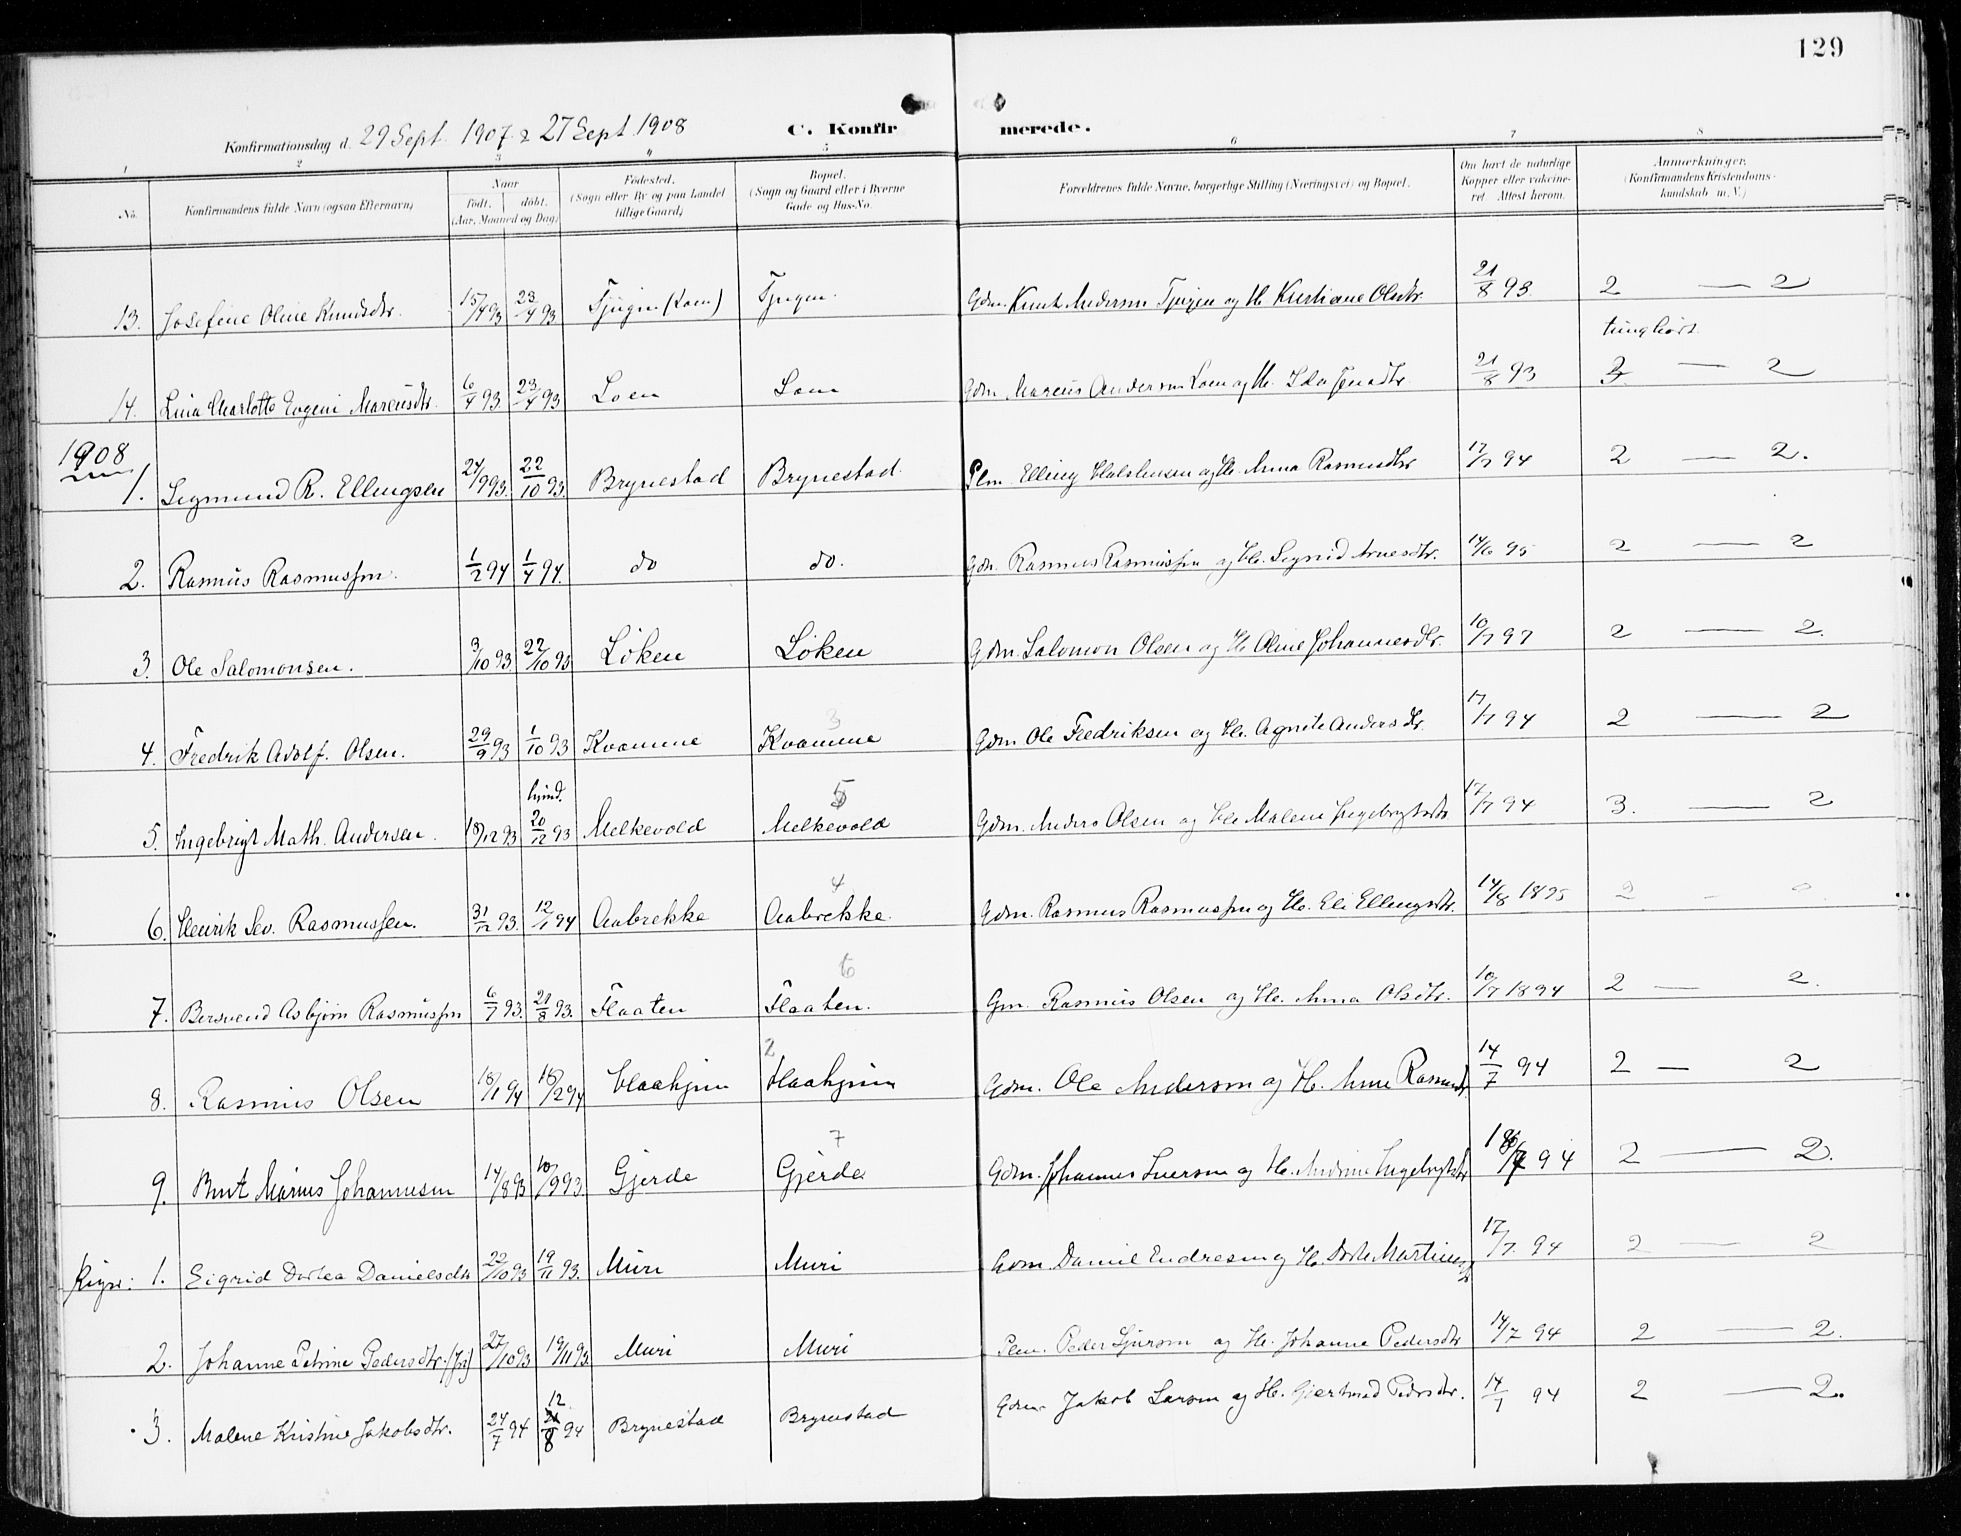 129
Konfirmationsdag d. 29 Sept. 1907 & 27 Sept 1908 C. Konfir merede.
1 2 3 4 5 6 7 8
No. Konfirmandens fulde Navn (ogsaa Efternavn) Naar födt. döbt. (Aar, Maaned og Dag) Födested. (Sogn eller By og paa Landet tillige Gaard) Bopæl. (Sogn og Gaard eller i Byerne Gade og Hus-No. Forældrenes fulde Navne, borgerlige Stilling (Næringsvei) og Bopæl. Om havt de naturlige Kopper eller vakcineret. Attest herom. Anmærkninger. (Konfirmandens Kristendomskundskab m. V.)
13. Josefine Oline Knudsdtr. 15/4 93 23/4 93 Tjugen (Loen) Tjugen. Gdm. Knut Andersen Tjugen og H. Kristiane Olsdtr. 21/8 93 2 — 2
tunghørt
14. Lina Charlotte Eugeni Marcusdtr. 6/4 93. 23/4 93 Loen Loen Gdm. Marcus Andersen Loen og H. Ida Jensdtr 21/8 93 3 — 2
1908
1. Sigmund R. Ellingsen 24/9 93. 22/10 93 Brynestad Brynestad. Plm. Elling og H. Anna Rasmusdtr 17/7 94 2 — 2.
2. Rasmus Rasmussen. 1/2 94 1/4 94. do do. Gdm. Rasmus Rasmussen og H. Sigrid Arnesdtr. 14/6 95 2 — 2
3. Ole Salomonsen. 3/10 93 22/10 93 Löken Löken Gdm. Salomon Olsen og H Oline Johannesdtr. 10/7 97 2 — 2.
3
4. Fredrik Adolf. Olsen. 29/9 93 1/10 93 Kvamme Kvamme Gdm Ole Fredriksen og H. Agnete Andersdtr. 17/7 94 2 — 2
hjmd.
5
5. Ingebrigt Math. Andersen. 18/12 93 20/12 93 Melkevold Melkevold Gdm. Anders Olsen og H. Malene Ingebrigtsdtr 17/7 94 3. — 2
4
6. Henrik Sev. Rasmussen. 31/12 93. 12/1 94 Aabrekke Aabrekke. Gdm. Rasmus Rasmussen og H. Eli Ellingsdtr. 14/8 1895 2 — 2
6
7. Bersvend Asbjørn Rasmussen 6/7 93. 21/8 93. Flaaten Flaaten. Gm. Rasmus Olsen og H. Anna Olsdtr. 10/7 1894 2 — 2.
2
8. Rasmus Olsen 18/1 94 18/2 94 Haahjem Haahjem Gdm. Ole Andersen og H. Anne Rasmusdtr 14/7 94 2 — 2
7
9. Bent Marius Johannesen 14/8 93 10/9 93. Gjerde Gjerde Gdm. Johannes Iversen og H. Andrine Ingebrigtsdtr 18/7 94 2 — 2.
Piger: 1. Sigrid Dortea Danielsdtr 22/10 93 19/11 93. Muri Muri Gdm. Daniel Endresen og H. Dorte Martinusdtr 17/7. 94 2 — 2
2. Johanne Petrine Pedersdtr. 27/10 93 19/11 93. Muri Muri Plm. Peder Sjursen og H. Johanne Pedersdtr 14/7 94 2 — 2.
12
3. Malene Kristine Jakobsdtr. 24/7 94 8 94 Brynestad Brynestad Gdm. Jakob Larsen og H. Gjertrud Pedersdtr. 14/7 94 2 — 2.